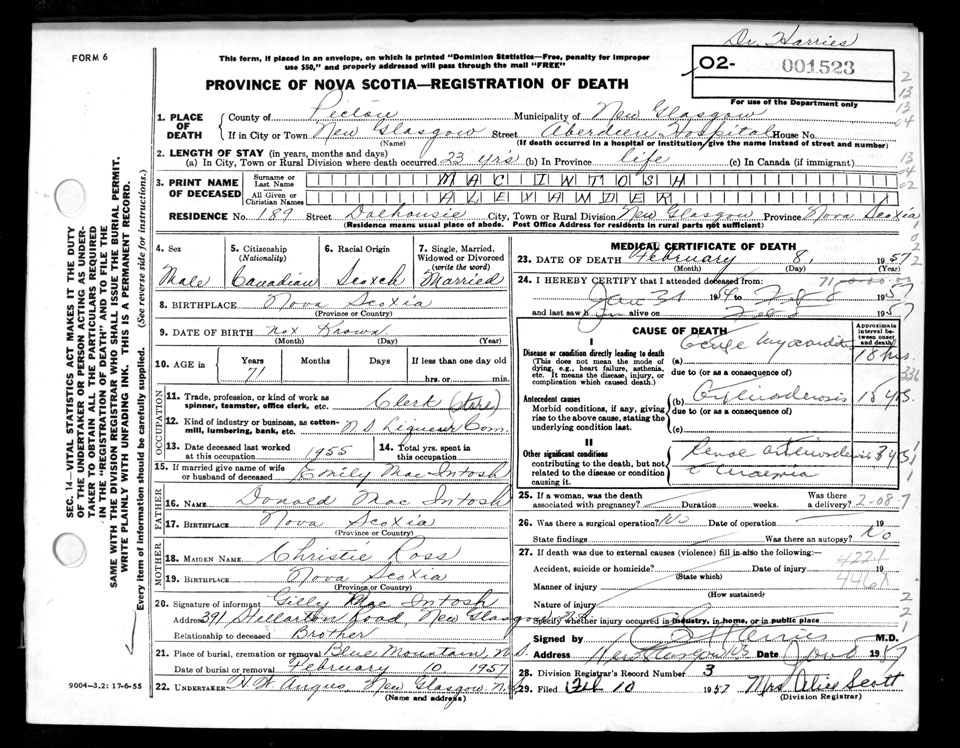 Dr. Harries
FORM 6
This form, if placed in an envelope, on which is printed "Dominion Statistics—Free, penalty for improper
use $50," and properly addressed will pass through the mail "FREE"
02- 001523
PROVINCE OF NOVA SCOTIA—REGISTRATION OF DEATH
For use of the Department only
1. PLACE OF DEATH
County of Pictou Municipality of New Glasgow
If in City or Town New Glasgow Street Aberdeen Hospital House No.
(Name) (If death occurred in a hospital or institution, give the name instead of street and number)
2. LENGTH OF STAY (in years, months and days)
(a) In City, Town or Rural Division where death occurred 23 yrs (b) In Province life (c) In Canada (if immigrant)
3. PRINT NAME OF DECEASED
Surname or Last Name MAC INTOSH
All Given or Christian Names ALEXANDER
RESIDENCE No. 189 Street Dalhousie City, Town or Rural Division New Glasgow Province Nova Scotia
(Residence means usual place of abode. Post Office Address for residents in rural parts not sufficient)
4. Sex Male
5. Citizenship (Nationality) Canadian
6. Racial Origin Scotch
7. Single, Married, Widowed or Divorced (write the word) Married
8. BIRTHPLACE Nova Scotia
(Province or Country)
9. DATE OF BIRTH not Known
(Month) (Day) (Year)
10. AGE in Years 71 Months Days If less than one day old
hrs. or min.
OCCUPATION
11. Trade, profession, or kind of work as spinner, teamster, office clerk, etc. Clerk (store)
12. Kind of industry or business, as cotton-mill, lumbering, bank, etc. N S Liqueur Com.
13. Date deceased last worked at this occupation 1955
14. Total yrs. spent in this occupation
15. If married give name of wife or husband of deceased Emily Mac Intosh
FATHER
16. NAME Donald Mac Intosh
17. BIRTHPLACE Nova Scotia
(Province or Country)
MOTHER
18. MAIDEN NAME Christie Ross
19. BIRTHPLACE Nova Scotia
(Province or Country)
20. Signature of informant Gilly Mac Intosh
Address 391 Stellarton Road, New Glasgow, N.S.
Relationship to deceased Brother
21. Place of burial, cremation or removal Blue Mountain, N.S.
Date of burial or removal February 10 1957
22. UNDERTAKER H W Angus, New Glasgow N.S.
(Name and address)
MEDICAL CERTIFICATE OF DEATH
23. DATE OF DEATH February 8, 1957
(Month) (Day) (Year)
24. I HEREBY CERTIFY that I attended deceased from
Jan 31 19 to Feb 8 1957
and last saw him alive on Feb 8 1957
CAUSE OF DEATH
Approximate interval between onset and death
I
Disease or condition directly leading to death
(This does not mean the mode of dying, e.g., heart failure, asthenia, etc. It means the disease, injury, or complication which caused death.)
(a) 18 hrs.
due to (or as a consequence of)
Antecedent causes
Morbid conditions, if any, giving rise to the above cause, stating the underlying condition last.
(b) 10 yrs.
due to (or as a consequence of)
(c)
II
Other significant conditions
contributing to the death, but not related to the disease or condition causing it.
Renal 3 yrs
uraemia
25. If a woman, was the death associated with pregnancy? Duration weeks. Was there a delivery? 2-08-7
26. Was there a surgical operation? No Date of operation 19
State findings Was there an autopsy? No
27. If death was due to external causes (violence) fill in also the following:—
Accident, suicide or homicide? Date of injury 19
(State which)
4221
446X
Manner of injury
(How sustained)
Nature of injury
Specify whether injury occurred in industry, in home, or in public place
Signed by M.D.
Address New Glasgow NS Date 1957
28. Division Registrar's Record Number 3
29. Filed Feb 10 1957 Mrs Alice Scott
(Division Registrar)
SEC. 14—VITAL STATISTICS ACT MAKES IT THE DUTY
OF THE UNDERTAKER OR PERSON ACTING AS UNDER-
TAKER TO OBTAIN ALL THE PARTICULARS REQUIRED
IN THE "REGISTRATION OF DEATH" AND TO FILE THE
SAME WITH THE DIVISION REGISTRAR WHO SHALL ISSUE THE BURIAL PERMIT.
WRITE PLAINLY WITH UNFADING INK. THIS IS A PERMANENT RECORD.
Every item of information should be carefully supplied. (See reverse side for instructions.)
9004—3.2: 17-6-55